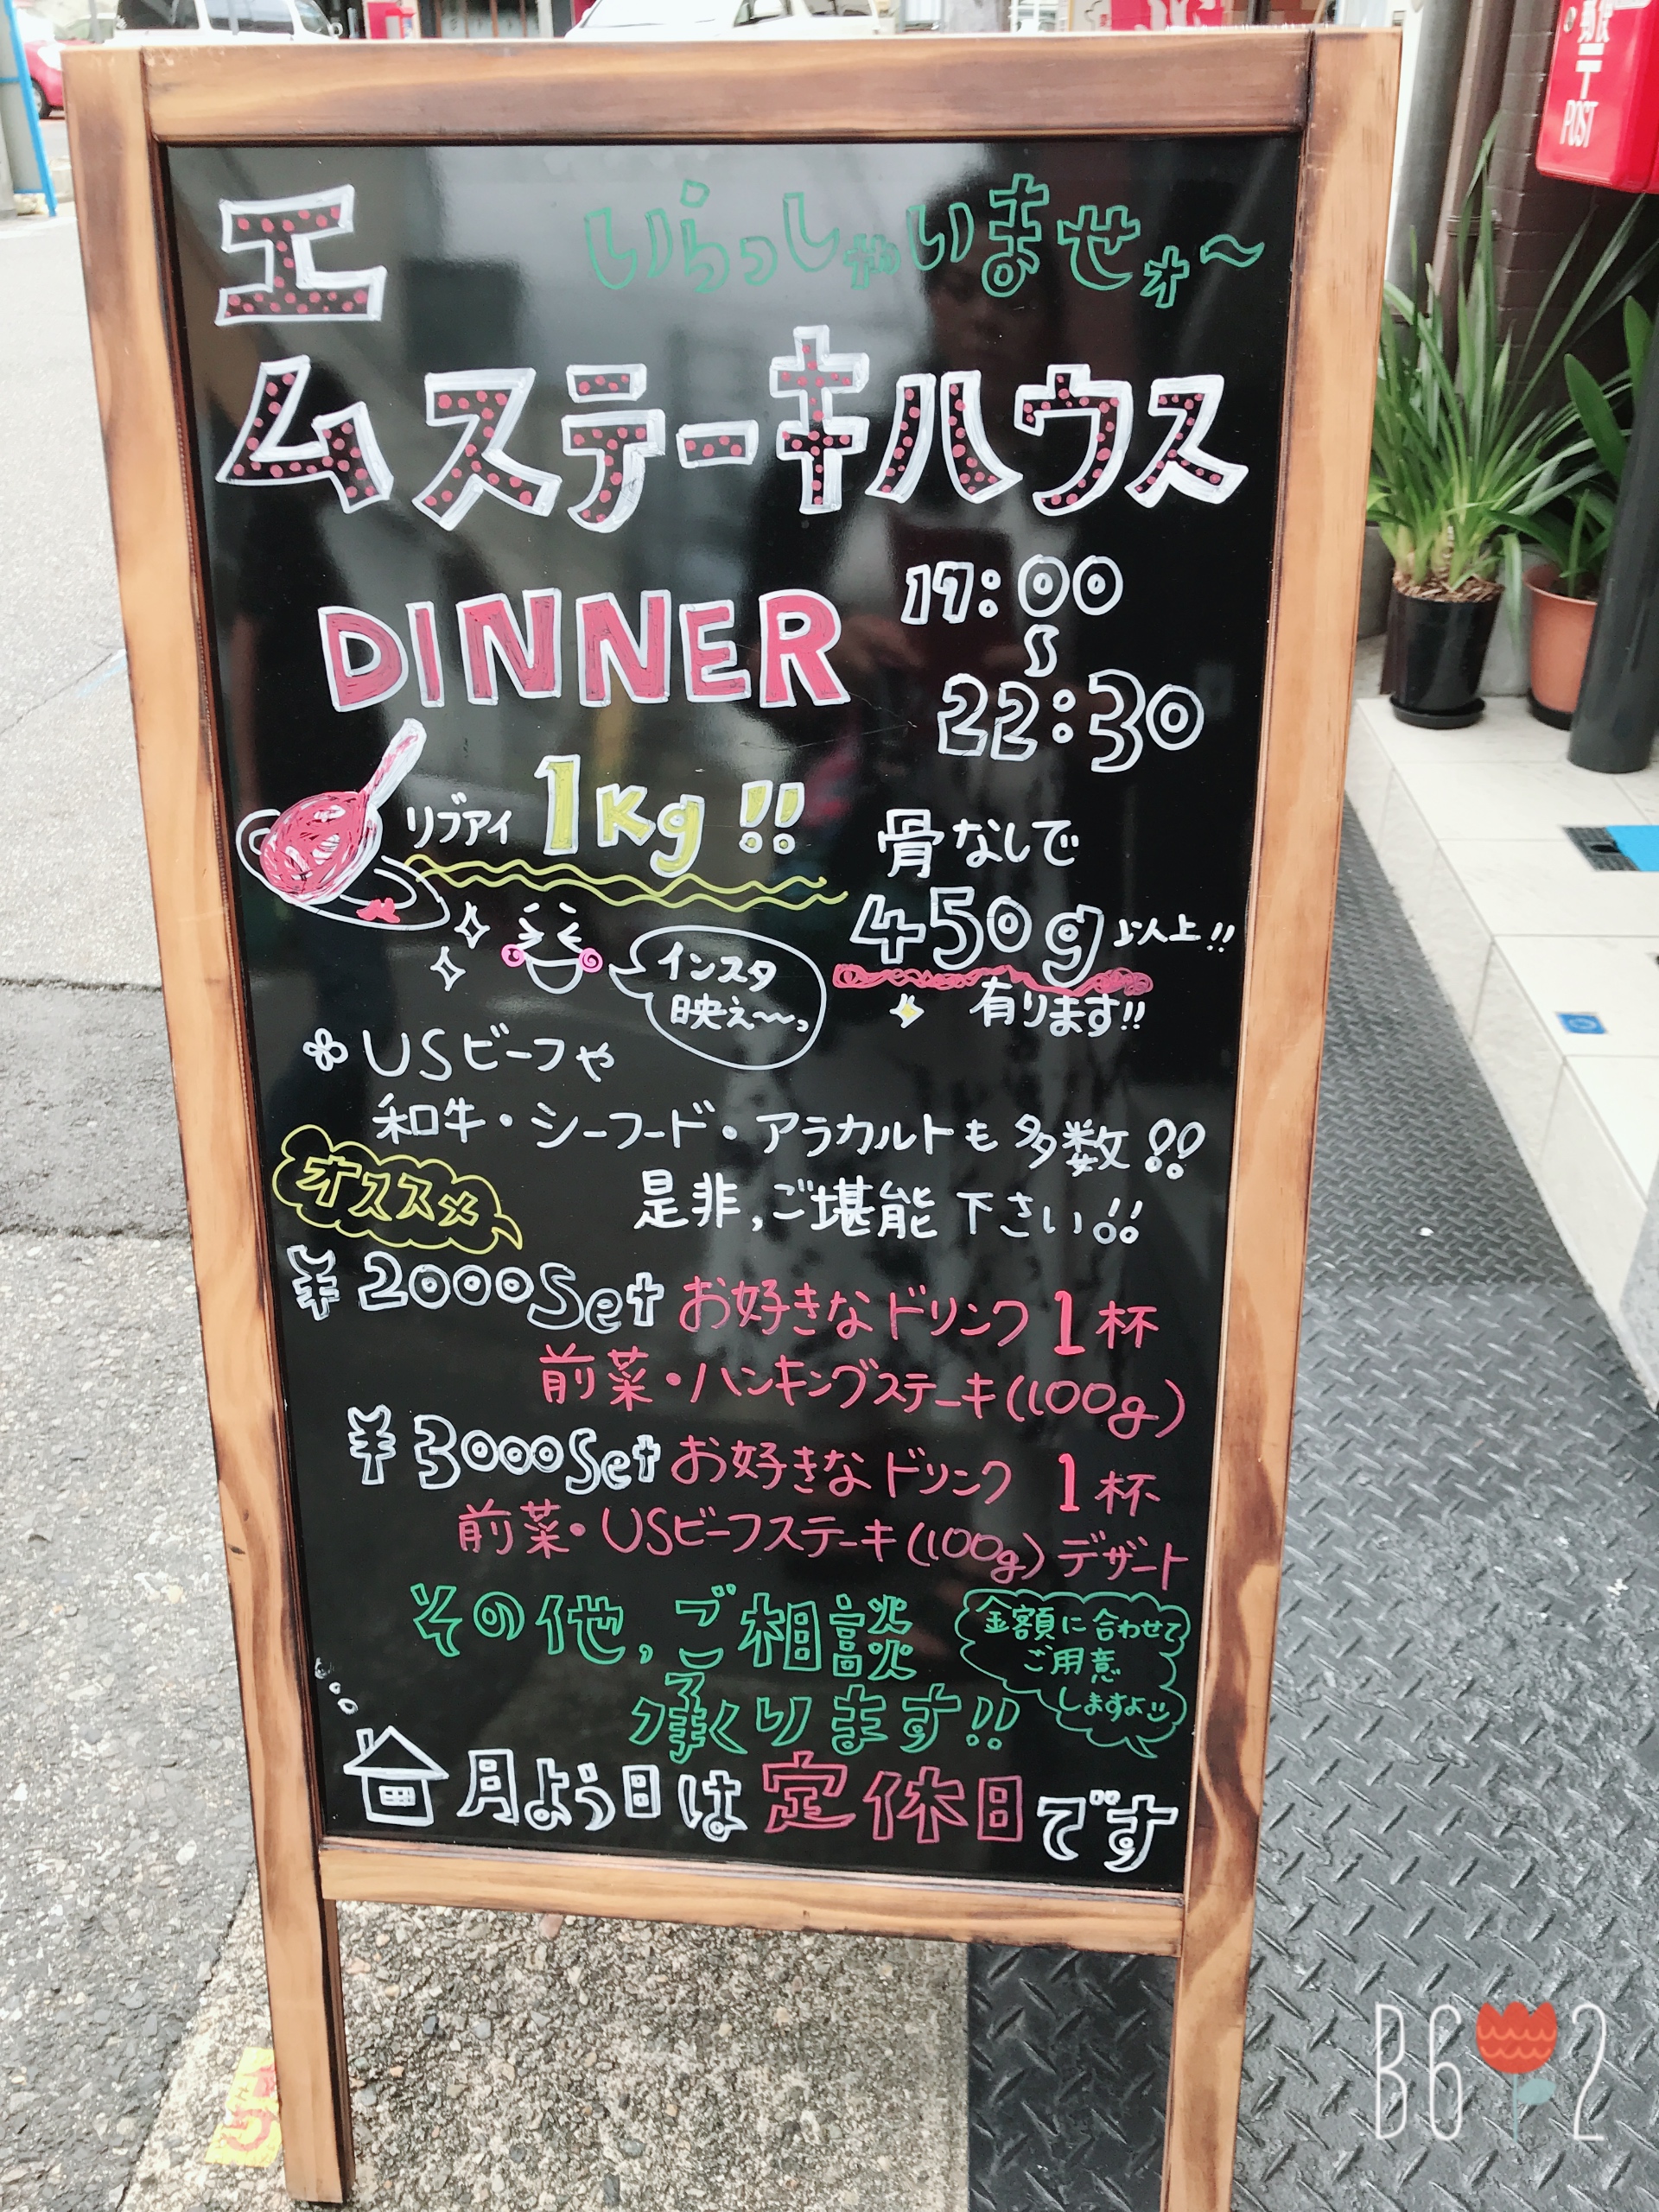 いらっしゃいませォ〜
エ
ムステーキハウス
DINNER
17:00
〜
22:30
リブアイ 1Kg!!
骨なしで
450g以上!!
有ります!!
インスタ
映え〜っ
USビーフや
和牛・シーフード・アラカルトも多数!!
オススメ
是非,ご堪能下さい!!
¥2000Set お好きなドリンク1杯
前菜・ハンキングステーキ(100g)
¥3000Set お好きなドリンク 1杯
前菜・USビーフステーキ(100g)デザート
その他,ご相談
承ります!!
金額に合わせて
ご用意
しますよ
月よう日は定休日です
郵便
〒
POST
B612